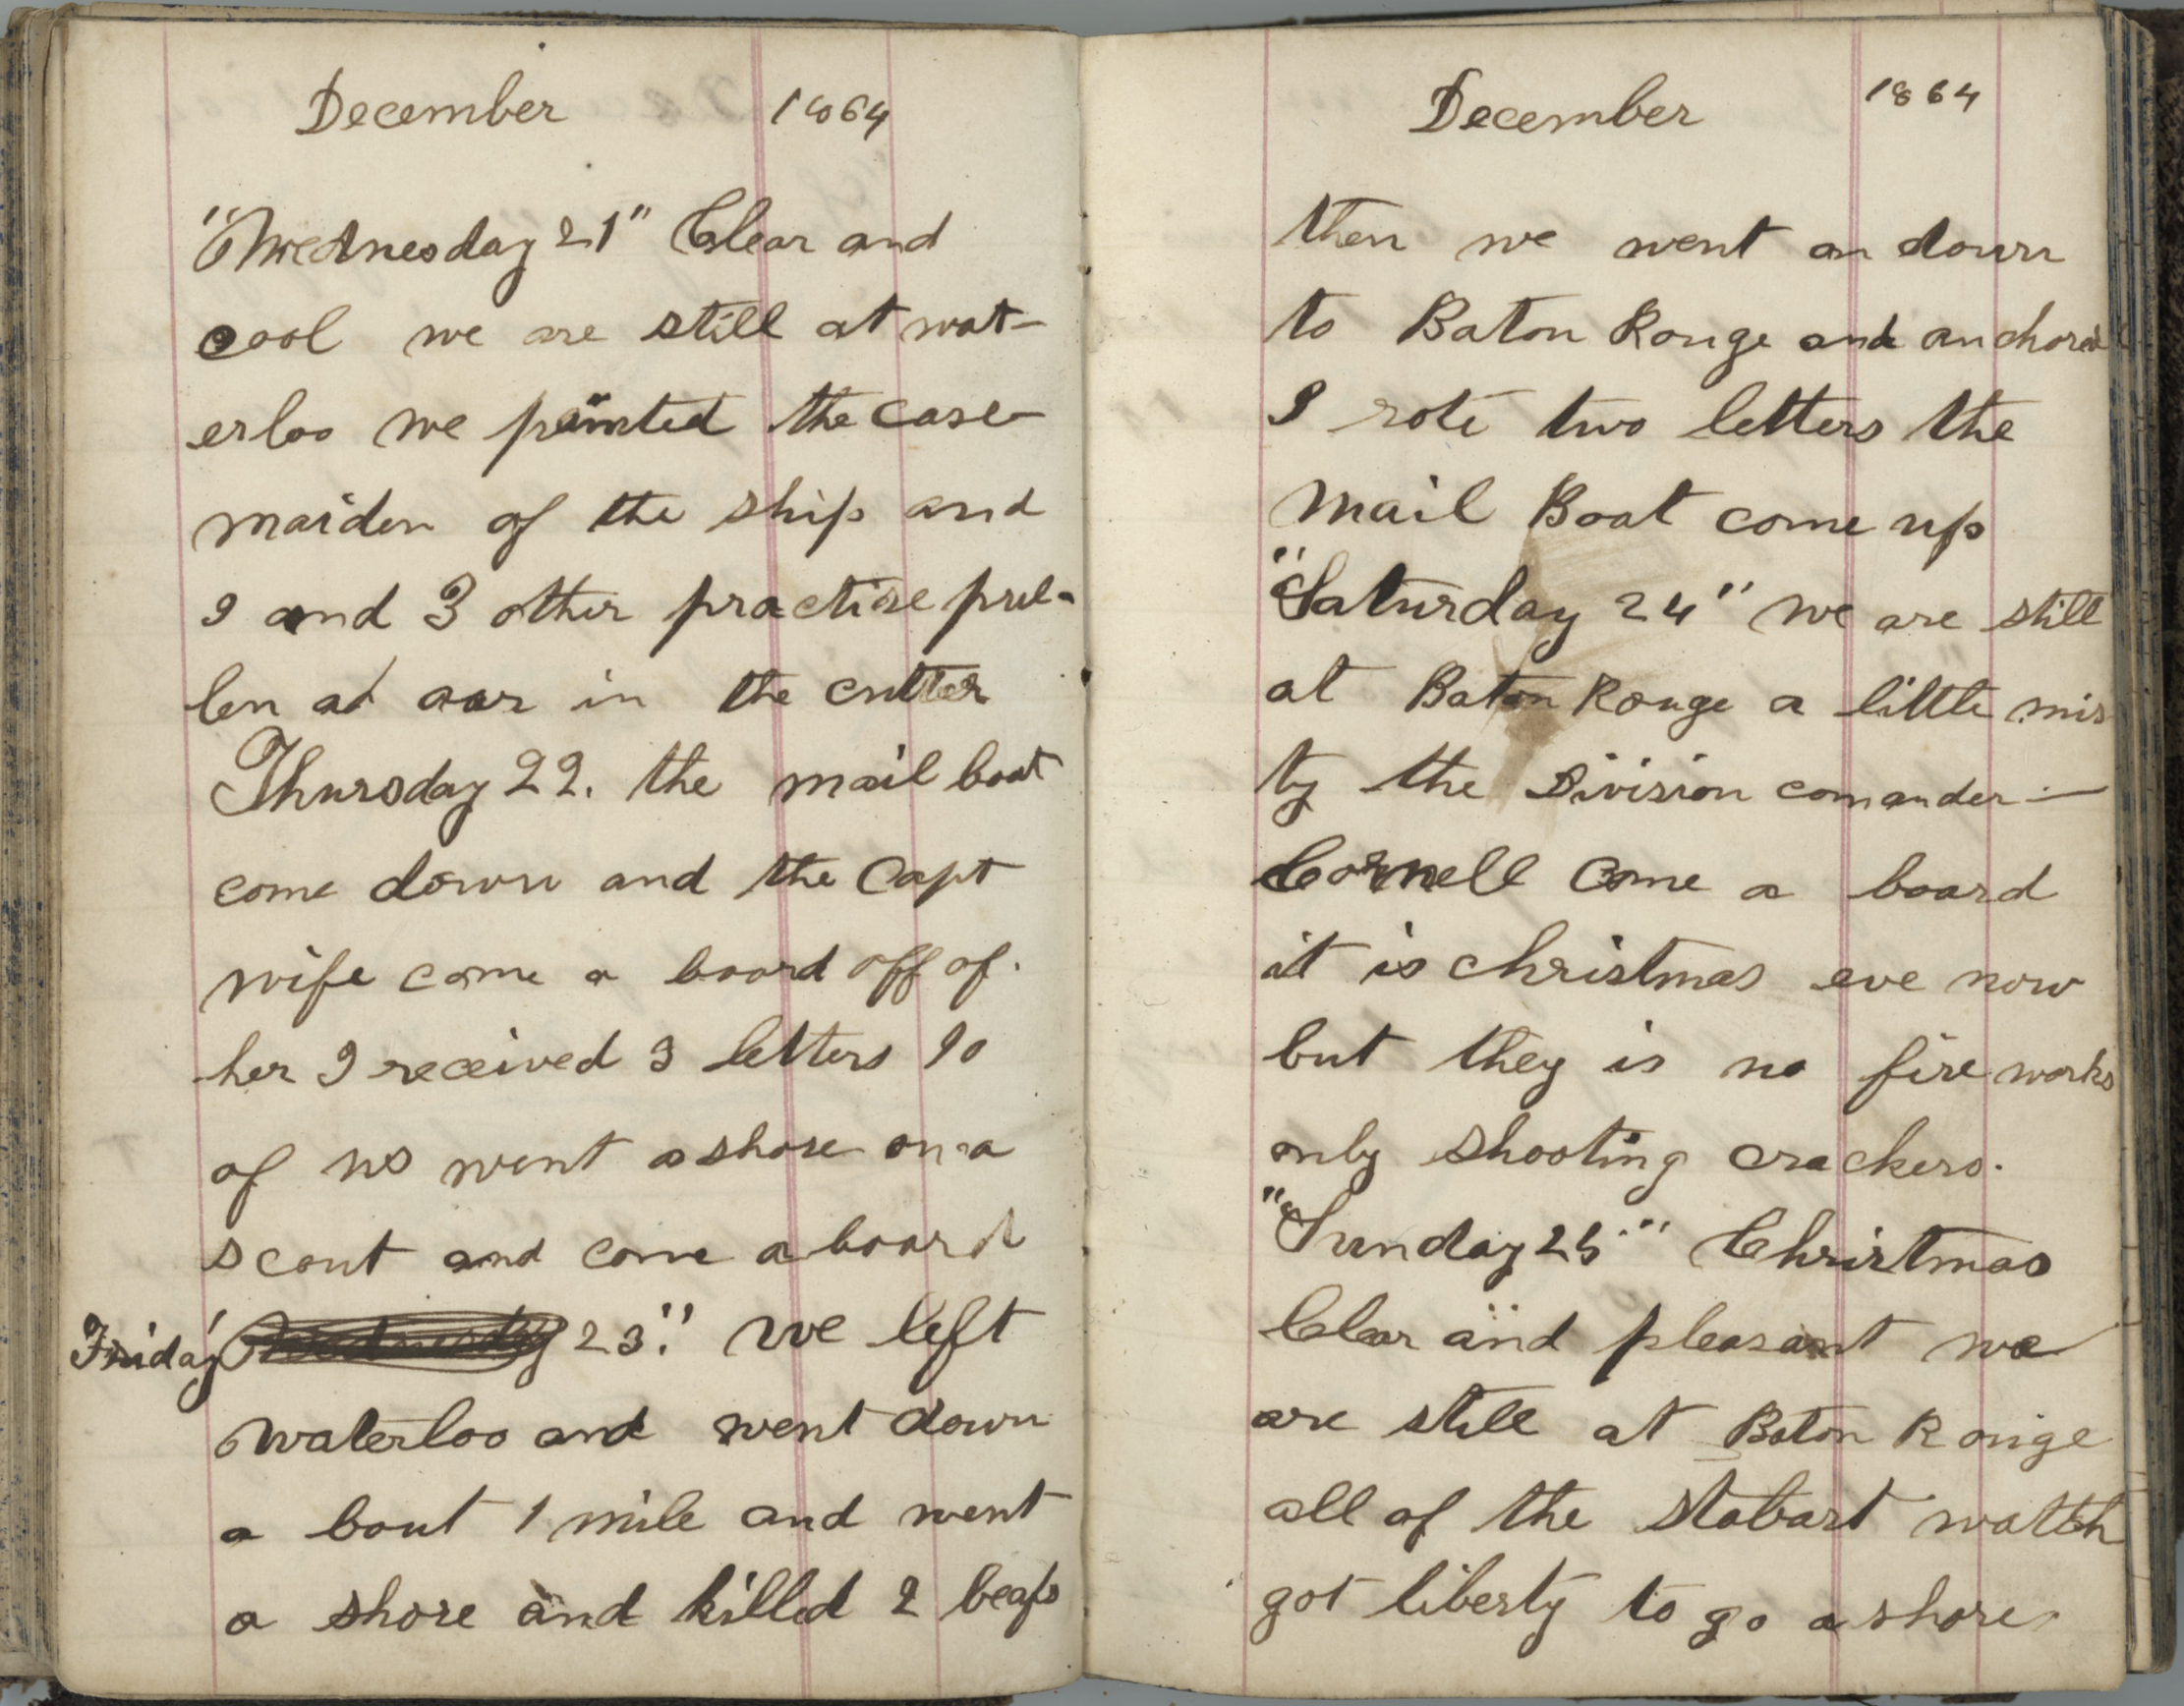 December 1864
"Wednesday 21" Clear and
cool we are still at wat-
erloo we painted the case-
maiden of the ship and
I and 3 other practise pul-
len ad oar in the cutter
Thursday 22. the mail boat
come down and the Capt
wife come a board off of.
her I received 3 letters 10
of us went a shore on a
scout and come a board
Friday 23." we left
waterloo and went down
a bout 1 mile and went
a shore and killed 2 beafs
December 1864
then we went on down
to Baton Rouge and anchored
I rote two letters the
Mail Boat come up
"Saturday 24" we are still
at Baton Rouge a little mis
ty the Division comander—
Cornell come a board
it is christmas eve now
but they is no fire works
only shooting crackers.
"Sunday 25" Christmas
Clear and pleasant we
are still at Baton Rouge
all of the Stabart wattch
got liberty to go a shore.